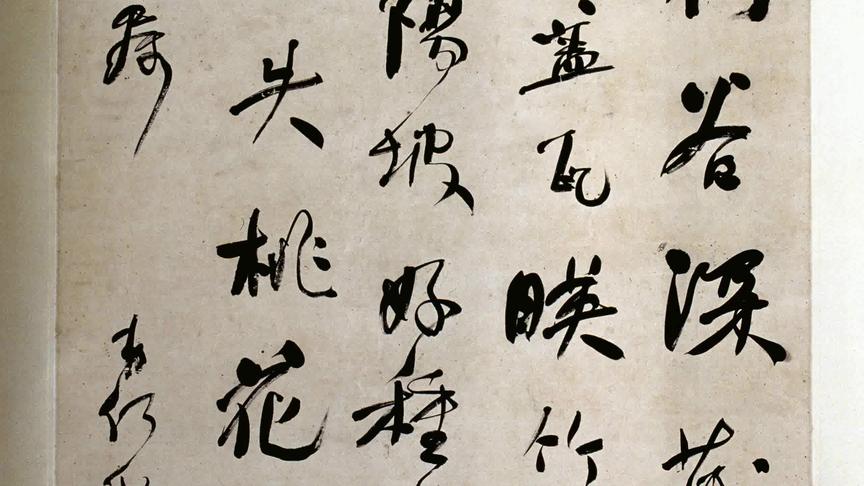 谷深
蓋瓦映竹
陽坡好種
失桃花